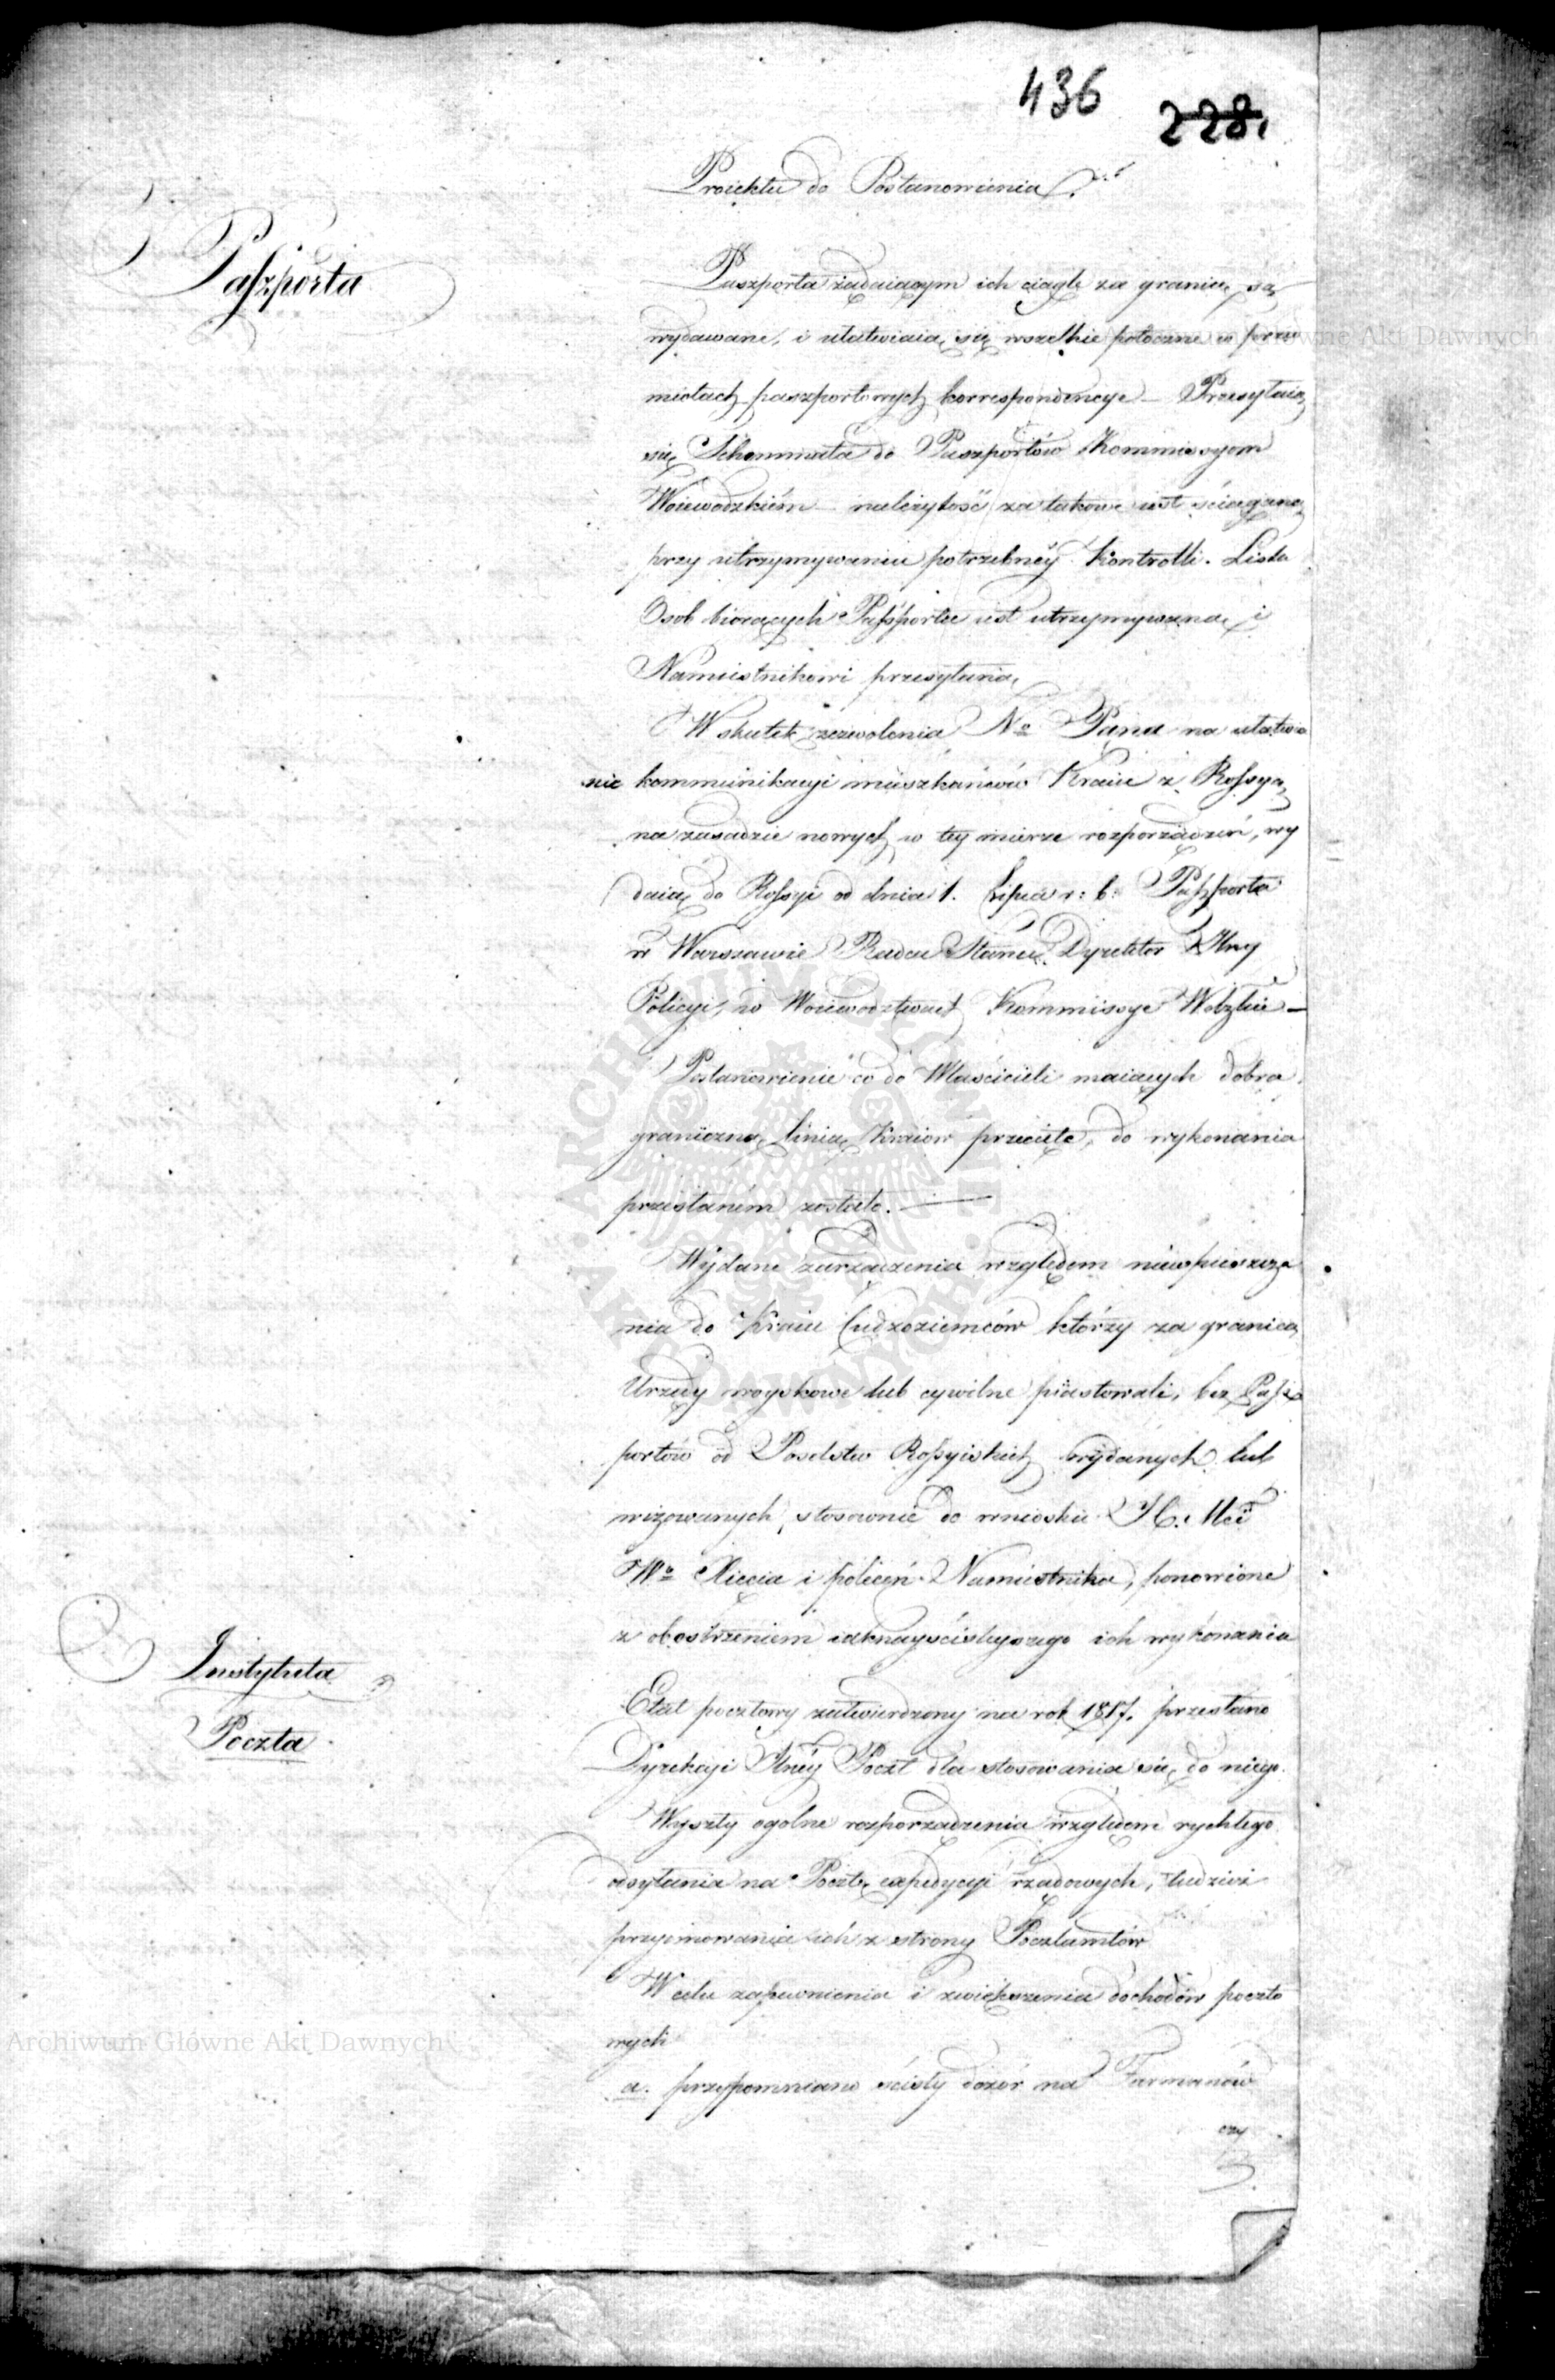 436
228.
Proiektu do Postanowienia
Paszporta
Paszporta żądaiącym ich ciągle za granicę są
wydawane, i ułatwiaią się wszelkie potoczne w przed
miotach paszportowych korrespondencye – Przesyłaią
się Schemmata do Paszportów Kommissyom
Woiewodzkiém należytość za takowe iest ściągana
przy utrzymywaniu potrzebnéy Kontrolli. Lista
Osob biorących Paszporta iest utrzymywana, i
Namiestnikowi przesyłana.
W skutek zezwolenia No Pana na ułatwie
nie kommunikacyi mieszkańców Kraiu z Rossyą,
na zasadzie nowych w tey mierze rozporządzeń, wy
daią do Rossyi od dnia 1. Lipca r: b: Paszporta
w Warszawie Radca Stanu Dyrektor Jlny
Policyi, w Woiewodztwach Kommissye Wdzkie –
Postanowienie co do Właścicieli maiących dobra
graniczną linią Kraiow przecięte, do wykonania
przesłaném zostało. —
Wydane zarządzenia względem niewpuszcza
nia do Kraiu Cudzoziemców którzy za granicą
Urzędy woyskowe lub cywilne piastowali, bez Pasz
portów od Poselstw Rossyiskich wydanych lub
wizowanych, stosownie do wniosku J. C. Mci
Wo Xięcia i poleceń Namiestnika, ponowione
z obostrzeniem iaknayściśleyszego ich wykonania
Instytuta
Poczta
Etat pocztowy zatwierdzony na rok 1817. przesłano
Dyrekcyi Jlnéy Poczt dla stosowania się do niego.
Wyszły ogolne rozporządzenia względem rychłego
odsyłania na Pocztę expedycyi rządowych, tudzież
przyimowania ich z strony Pocztamtów
W celu zapewnienia i zwiększenia dochodów poczto
wych
a. przypomniano ścisły dozór na Furmanów
czy
Archiwum Główne Akt Dawnych